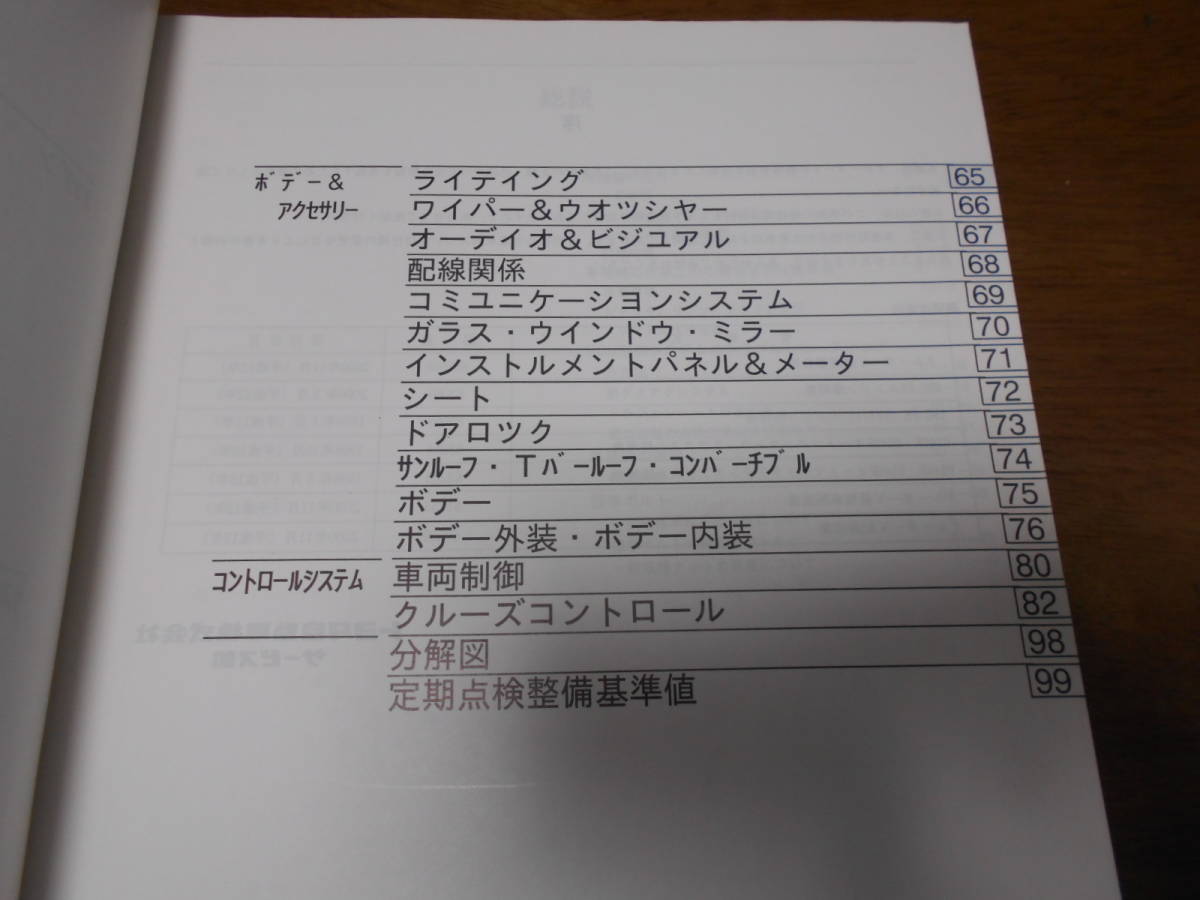 ボデー＆
アクセサリー
ライテイング 65
ワイパー＆ウオツシヤー 66
オーデイオ＆ビジユアル 67
配線関係 68
コミユニケーシヨンシステム 69
ガラス・ウインドウ・ミラー 70
インストルメントパネル＆メーター 71
シート 72
ドアロツク 73
サンルーフ・Tバールーフ・コンバーチブル 74
ボデー 75
ボデー外装・ボデー内装 76
コントロールシステム
車両制御 80
クルーズコントロール 82
分解図 98
定期点検整備基準値 99